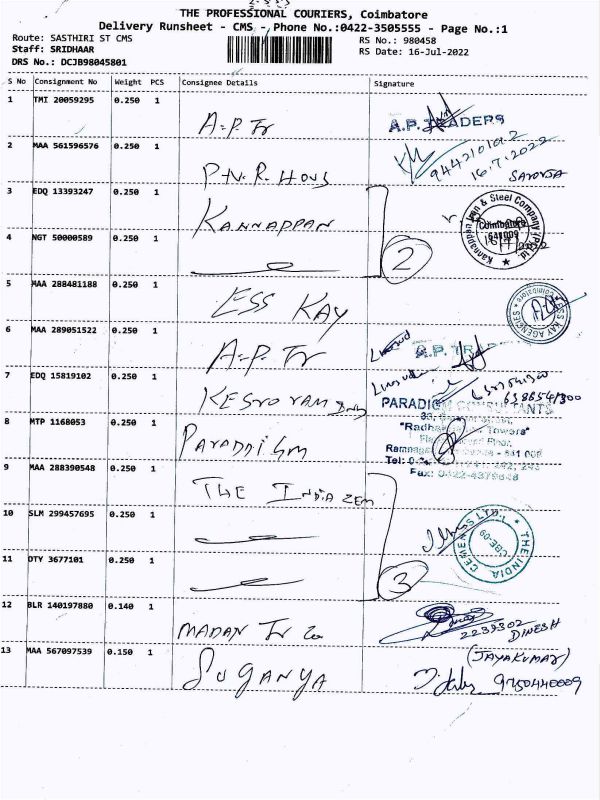 THE PROFESSIONAL COURIERS, Coimbatore
Delivery Runsheet - CMS - Phone No.:0422-3505555 - Page No.:1
Route: SASTHIRI ST CMS RS No.: 980458
Staff: SRIDHAAR RS Date: 16-Jul-2022
DRS No.: DCJB98045801
S No Consignment No Weight PCS Consignee Details Signature
1 TMI 20059295 0.250 1
A.P. Tr A.P. TRADERS
2 MAA 561596576 0.250 1
P.N.R. Hous 9442101012
16.7.2022
3 EDQ 13393247 0.250 1
KANNAPPAN Kannappan Iron & Steel Company (P) Ltd. Coimbatore 641009
4 NGT 50000589 0.250 1
2
5 MAA 288481188 0.250 1
ESS KAY ESS KAY AGENCIES Coimbatore
6 MAA 289051522 0.250 1
A.P. Tr A.P. TRADERS
7 EDQ 15819102 0.250 1
PARADIGM CONSULTANTS
8 MTP 1168053 0.250 1
"Radha Towers"
Floor,
Ramnagar
Tel:
Fax: 0422-4379648
9 MAA 288390548 0.250 1
THE INDIA CEM
10 SLM 299457695 0.250 1
THE INDIA CEMENTS LTD. CBE-09
11 DTY 3677101 0.250 1
3
12 BLR 140197880 0.140 1
MADAN Tr Co 2239302
DINESH
13 MAA 567097539 0.150 1
(JAYAKUMAR)
SUGANYA 9750440009